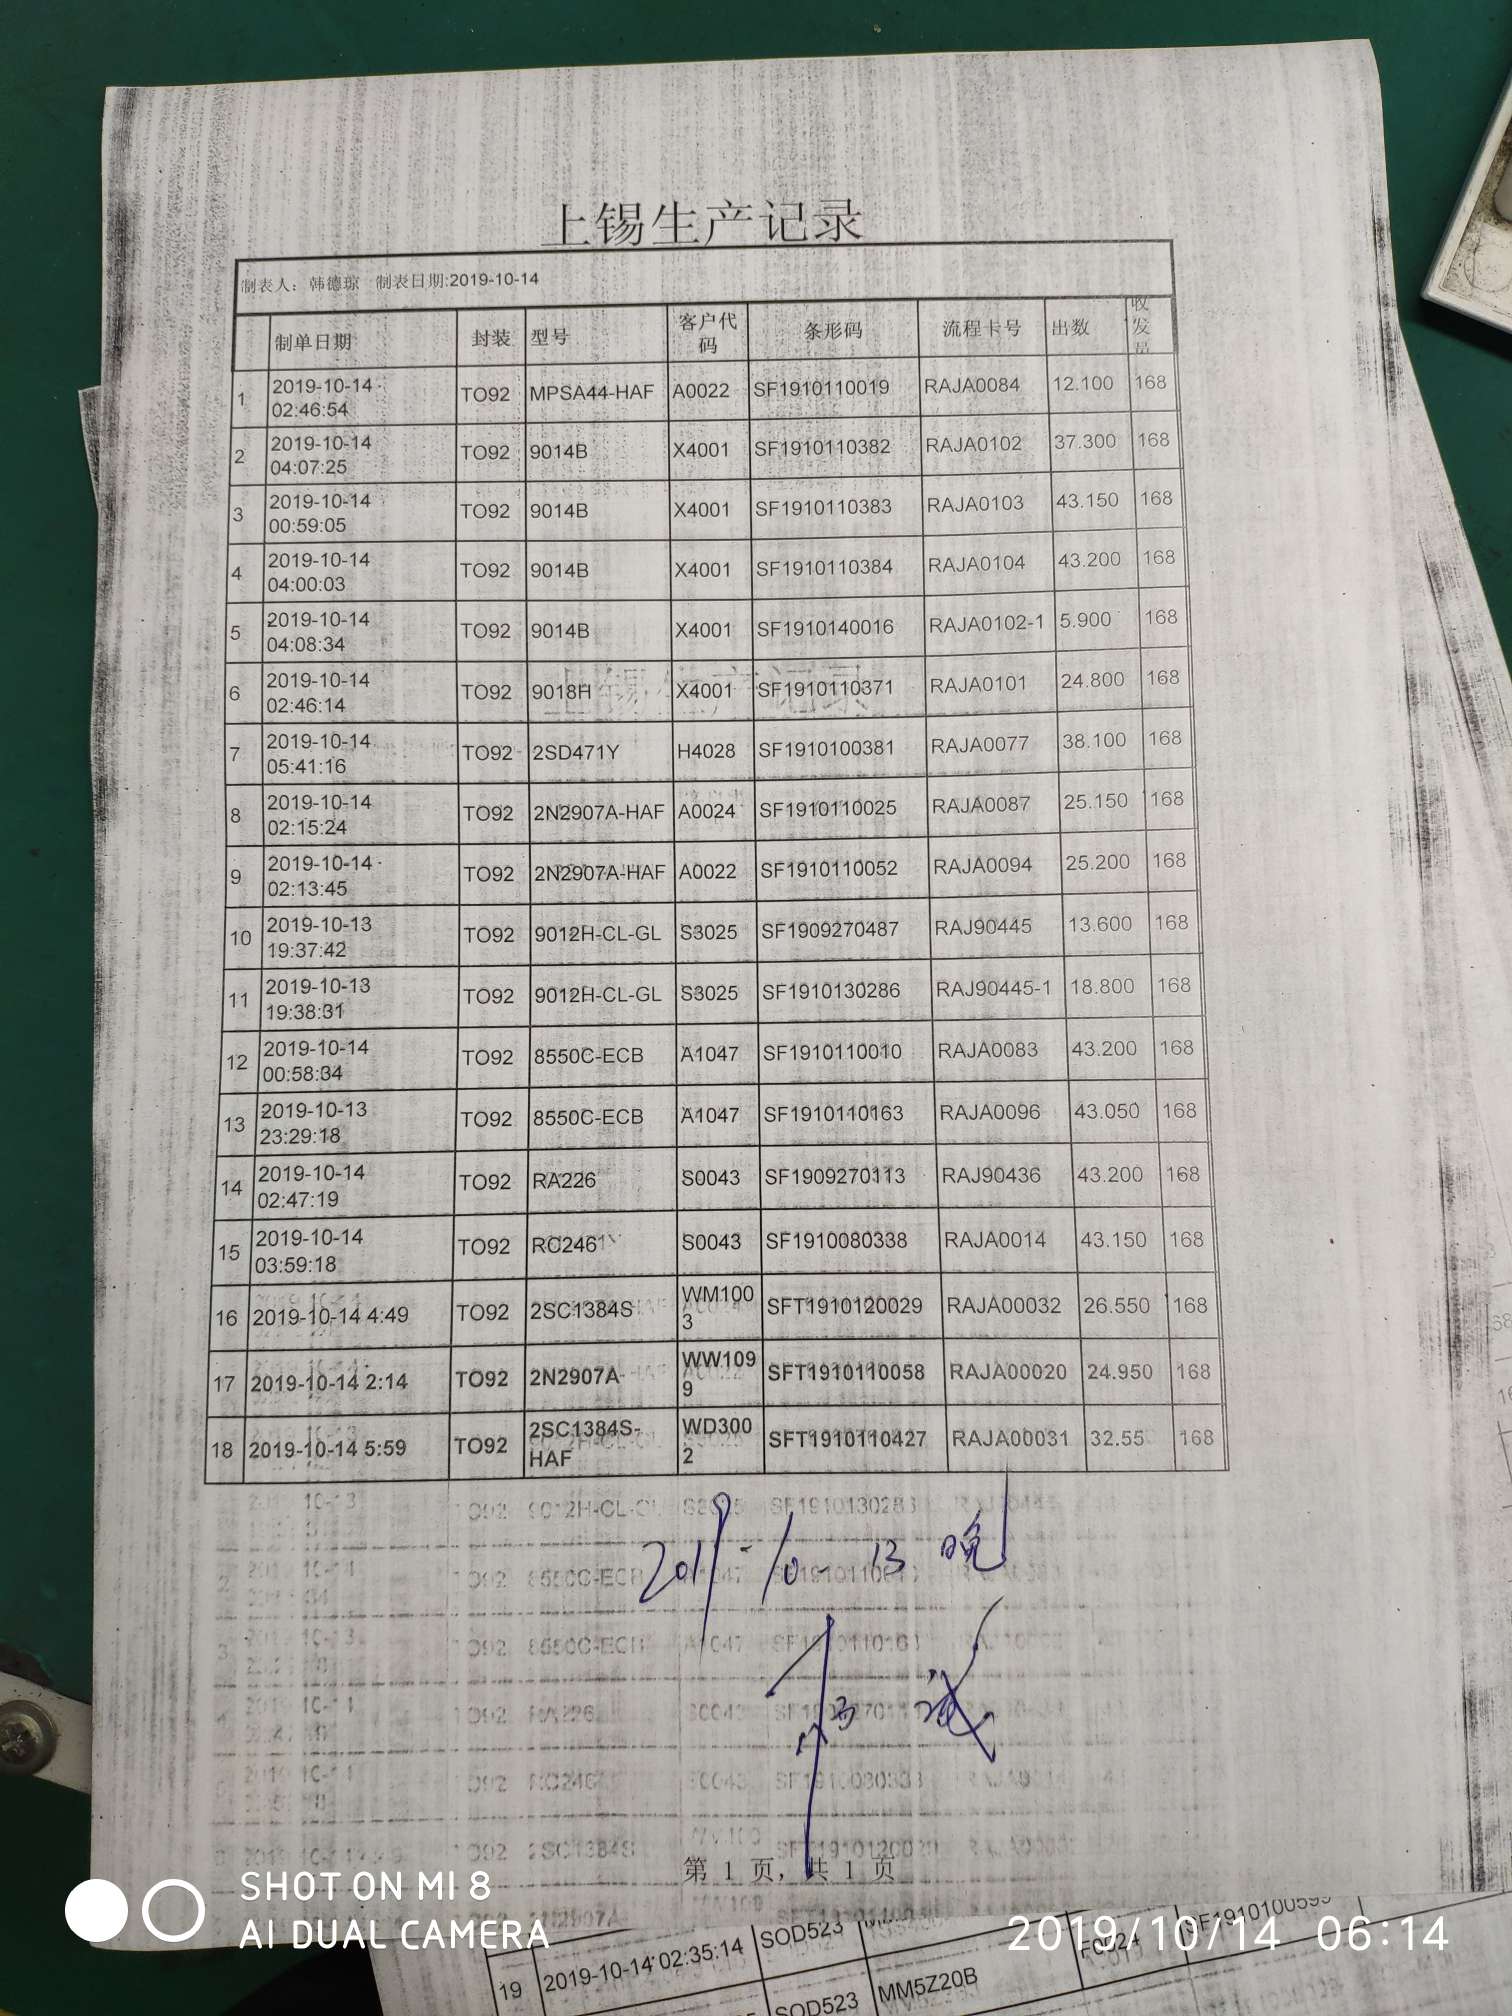 上锡生产记录
制表人：韩德琼 制表日期:2019-10-14
制单日期 封装 型号 客户代码 条形码 流程卡号 出数 收发员
1 2019-10-14 02:46:54 TO92 MPSA44-HAF A0022 SF1910110019 RAJA0084 12.100 168
2 2019-10-14 04:07:25 TO92 9014B X4001 SF1910110382 RAJA0102 37.300 168
3 2019-10-14 00:59:05 TO92 9014B X4001 SF1910110383 RAJA0103 43.150 168
4 2019-10-14 04:00:03 TO92 9014B X4001 SF1910110384 RAJA0104 43.200 168
5 2019-10-14 04:08:34 TO92 9014B X4001 SF1910140016 RAJA0102-1 5.900 168
6 2019-10-14 02:46:14 TO92 9018H X4001 SF1910110371 RAJA0101 24.800 168
7 2019-10-14 05:41:16 TO92 2SD471Y H4028 SF1910100381 RAJA0077 38.100 168
8 2019-10-14 02:15:24 TO92 2N2907A-HAF A0024 SF1910110025 RAJA0087 25.150 168
9 2019-10-14 02:13:45 TO92 2N2907A-HAF A0022 SF1910110052 RAJA0094 25.200 168
10 2019-10-13 19:37:42 TO92 9012H-CL-GL S3025 SF1909270487 RAJ90445 13.600 168
11 2019-10-13 19:38:31 TO92 9012H-CL-GL S3025 SF1910130286 RAJ90445-1 18.800 168
12 2019-10-14 00:58:34 TO92 8550C-ECB A1047 SF1910110010 RAJA0083 43.200 168
13 2019-10-13 23:29:18 TO92 8550C-ECB A1047 SF1910110163 RAJA0096 43.050 168
14 2019-10-14 02:47:19 TO92 RA226 S0043 SF1909270113 RAJ90436 43.200 168
15 2019-10-14 03:59:18 TO92 RC2461 S0043 SF1910080338 RAJA0014 43.150 168
16 2019-10-14 4:49 TO92 2SC1384S WM1003 SFT1910120029 RAJA00032 26.550 168
17 2019-10-14 2:14 TO92 2N2907A WW1099 SFT1910110058 RAJA00020 24.950 168
18 2019-10-14 5:59 TO92 2SC1384S-HAF WD3002 SFT1910110427 RAJA00031 32.55 168
2019-10-13 晚
第 1 页, 共 1 页
SHOT ON MI 8
AI DUAL CAMERA
2019/10/14 06:14
19 2019-10-14 02:35:14 SOD523 SF1910100599
SOD523 MM5Z20B